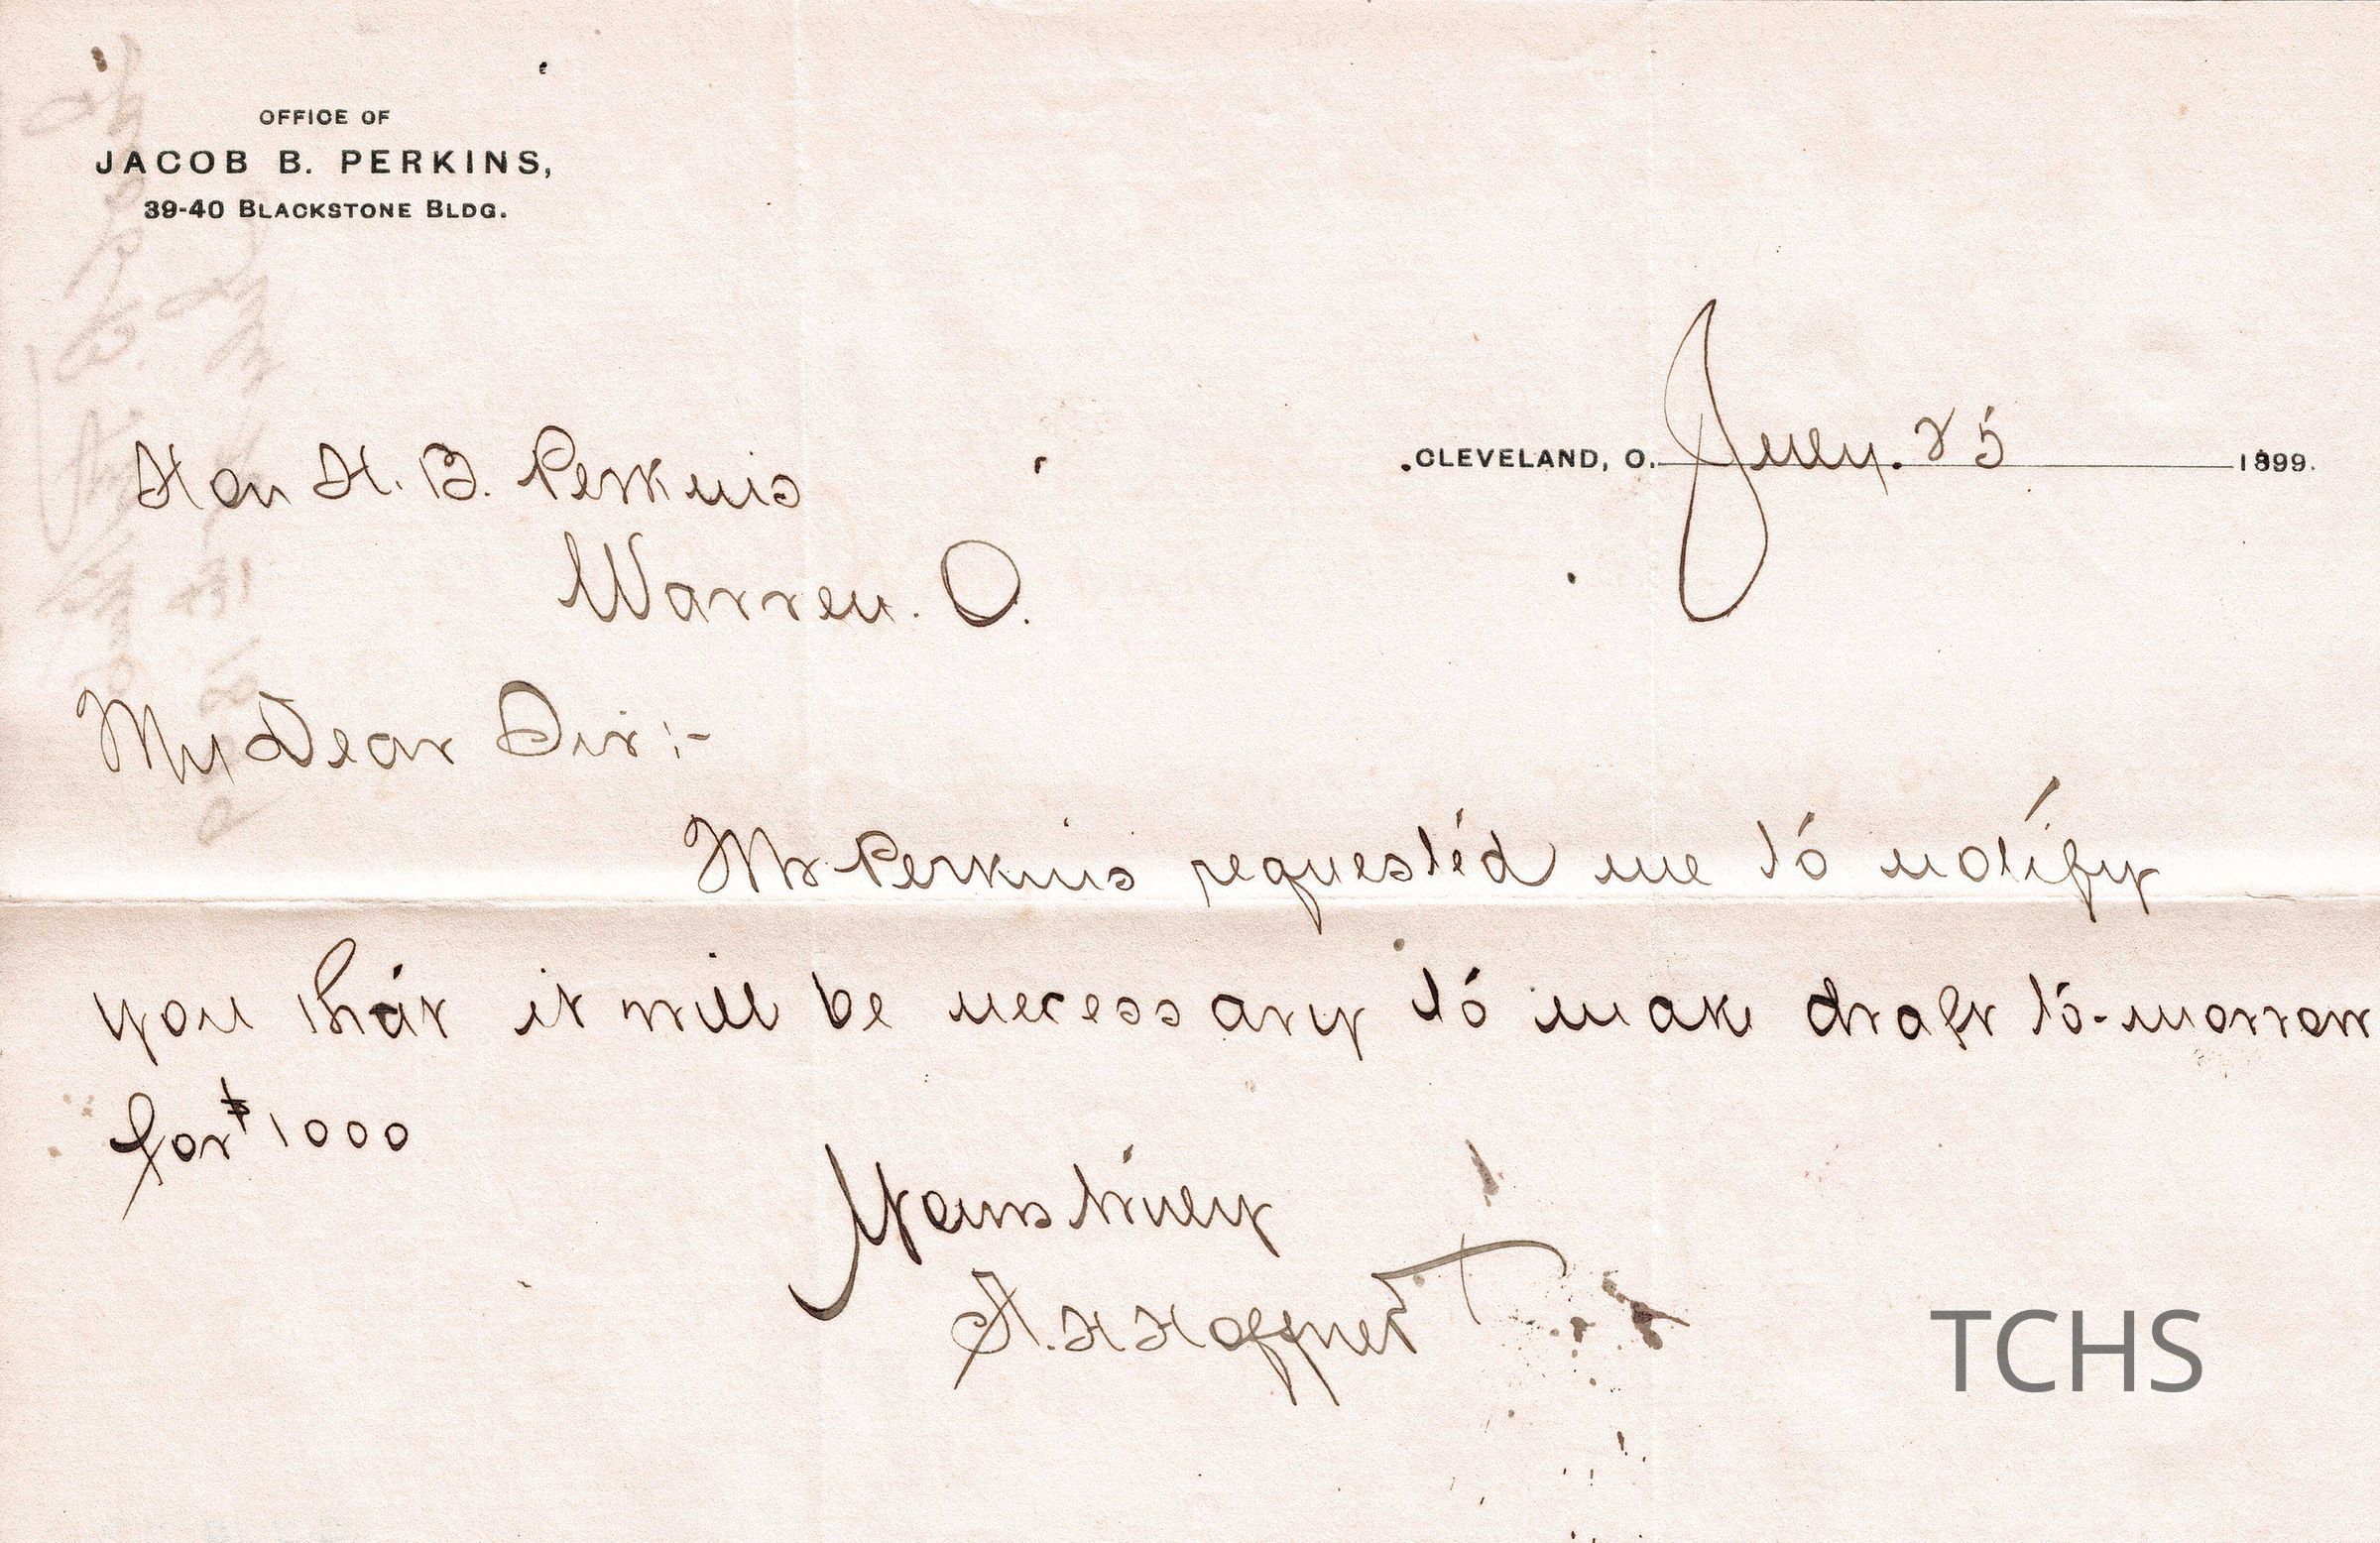 OFFICE OF
JACOB B. PERKINS,
39-40 BLACKSTONE BLDG.
CLEVELAND, O. July. 25 1899.
Hon H. B. Perkins
Warren. O.
My Dear Sir :-
Mr Perkins requested me to notify
you that it will be necessary to make draft to-morrow
for $1000
Yours truly
TCHS